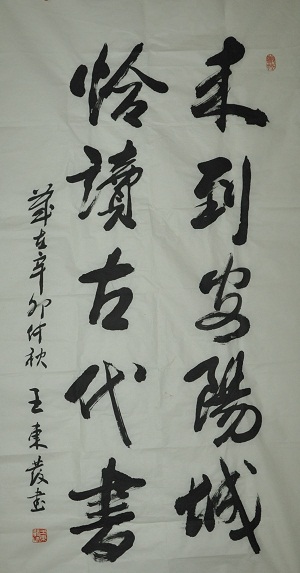 来到安阳城
恰读古代书
岁在辛卯仲秋 王东发书